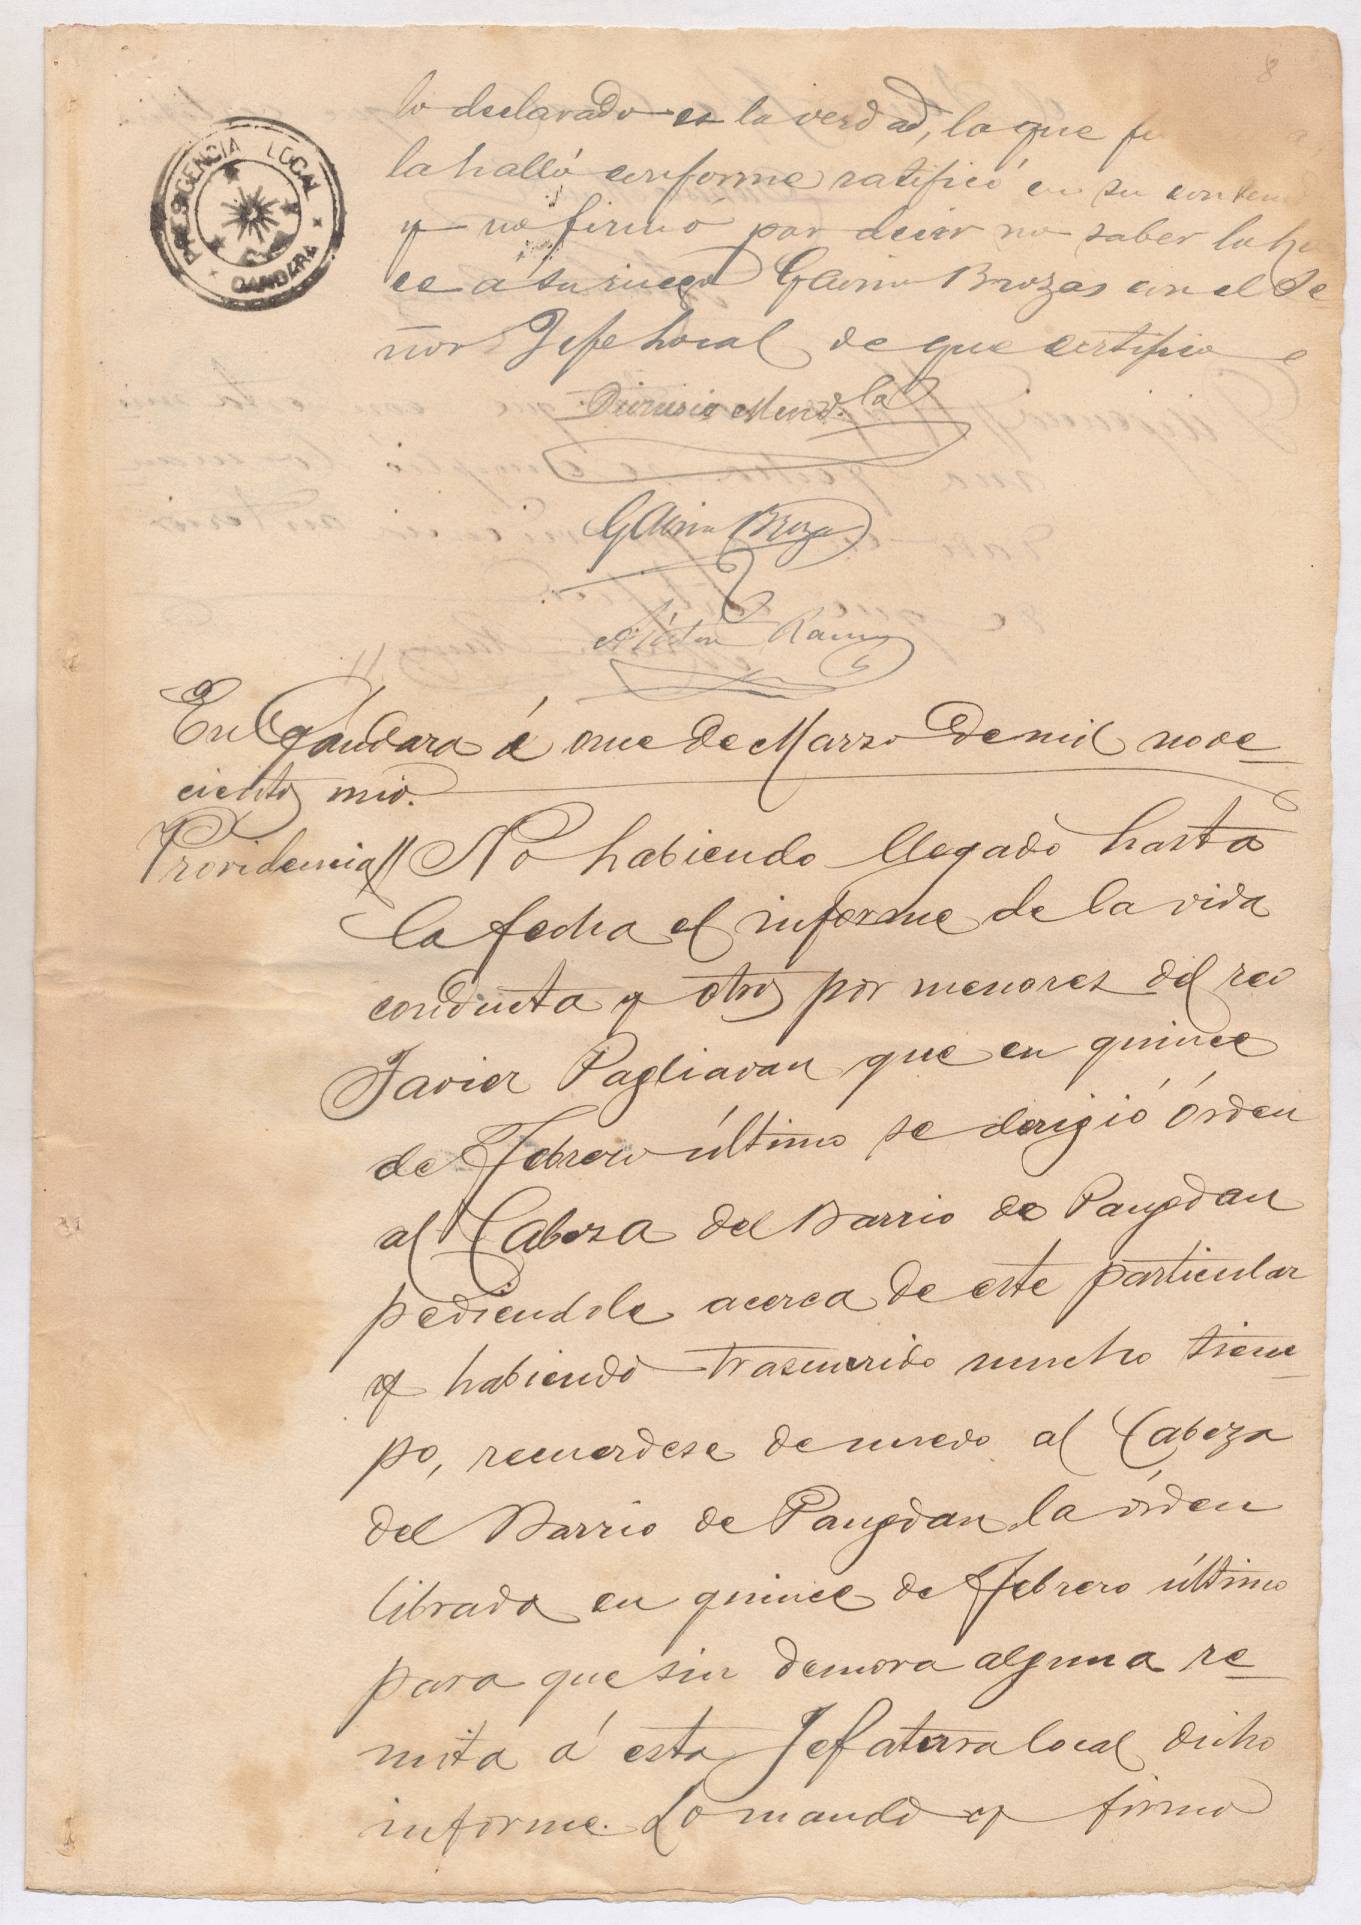 8
PRESIDENCIA LOCAL
GANDARA
lo declarado es la verdad, la que
la halló conforme ratificó en su
y no firmó por decir no saber lo ha
ce á su ruego Gavino Brozas con el Se
ñor Jefe Local de que certifico
Dionisio Mendola
Gavino Broza
Nestor Ramos
En Gándara á once de Marzo de mil nove-
cientos
Providencia// No habiendo llegado hasta
la fecha el informe de la vida
conducta y otros por menores del reo
Javier Pagliavan que en quince
de Febrero último se derigió órden
al Cabeza del Barrio de Paugdan
pediendole acerca de este particular
y habiendo trascurrido mucho tiem-
po, recuerdese de nuevo al Cabeza
del Barrio de Paugdan la órden
librada en quince de Febrero último
para que sin demora alguna re-
mita á esta Jefaterra local dicho
informe. Lo mandó y firmo